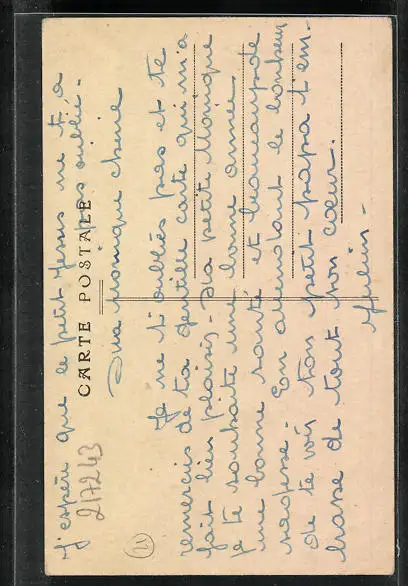 J'espère que le petit Jésus ne t'a
pas oublié.
CARTE POSTALE
217243
Ma monique chérie
Je ne t'oublies pas et te
remercis de ta gentille carte qui m'a
fait bien plaisir - Ma petite Monique
je te souhaite une bonne année
une bonne santé et beaucoup de
sagesse - En attendant le bonheur
de te voir ton petit papa t'em-
brasse de tout son coeur.
21